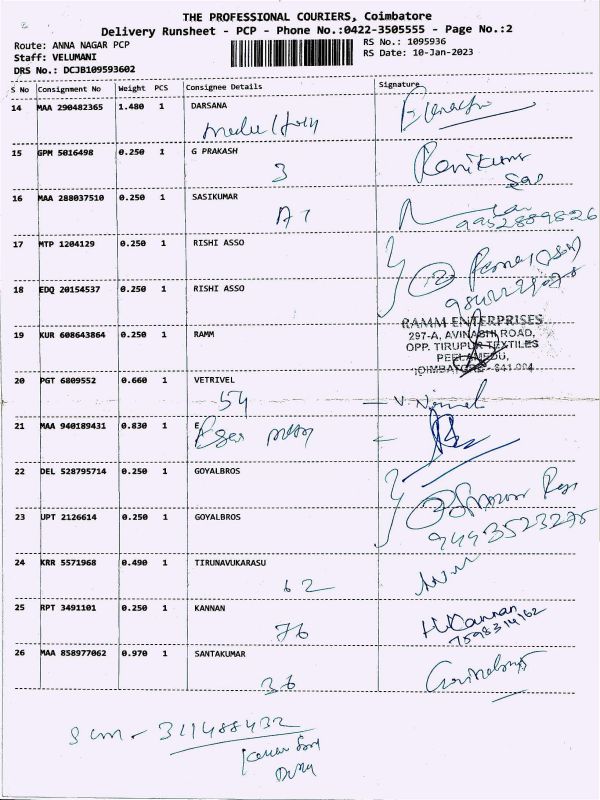 THE PROFESSIONAL COURIERS, Coimbatore
Delivery Runsheet - PCP - Phone No.:0422-3505555 - Page No.:2
Route: ANNA NAGAR PCP
RS No.: 1095936
Staff: VELUMANI
RS Date: 10-Jan-2023
DRS No.: DCJB109593602
S No Consignment No Weight PCS Consignee Details Signature
14 MAA 290482365 1.480 1 DARSANA
15 GPM 5016498 0.250 1 G PRAKASH
3
16 MAA 288037510 0.250 1 SASIKUMAR
A7
9952889826
17 MTP 1204129 0.250 1 RISHI ASSO
18 EDQ 20154537 0.250 1 RISHI ASSO
19 KUR 608643864 0.250 1 RAMM
RAMM ENTERPRISES
297-A, AVINASHI ROAD,
OPP. TIRUPUR TEXTILES
PEELAMEDU,
COIMBATORE - 641 004
20 PGT 6809552 0.660 1 VETRIVEL
54
21 MAA 940189431 0.830 1 E
22 DEL 528795714 0.250 1 GOYALBROS
23 UPT 2126614 0.250 1 GOYALBROS
24 KRR 5571968 0.490 1 TIRUNAVUKARASU
62
25 RPT 3491101 0.250 1 KANNAN
76
H.Kannan
7598314162
26 MAA 858977062 0.970 1 SANTAKUMAR
36
311488432